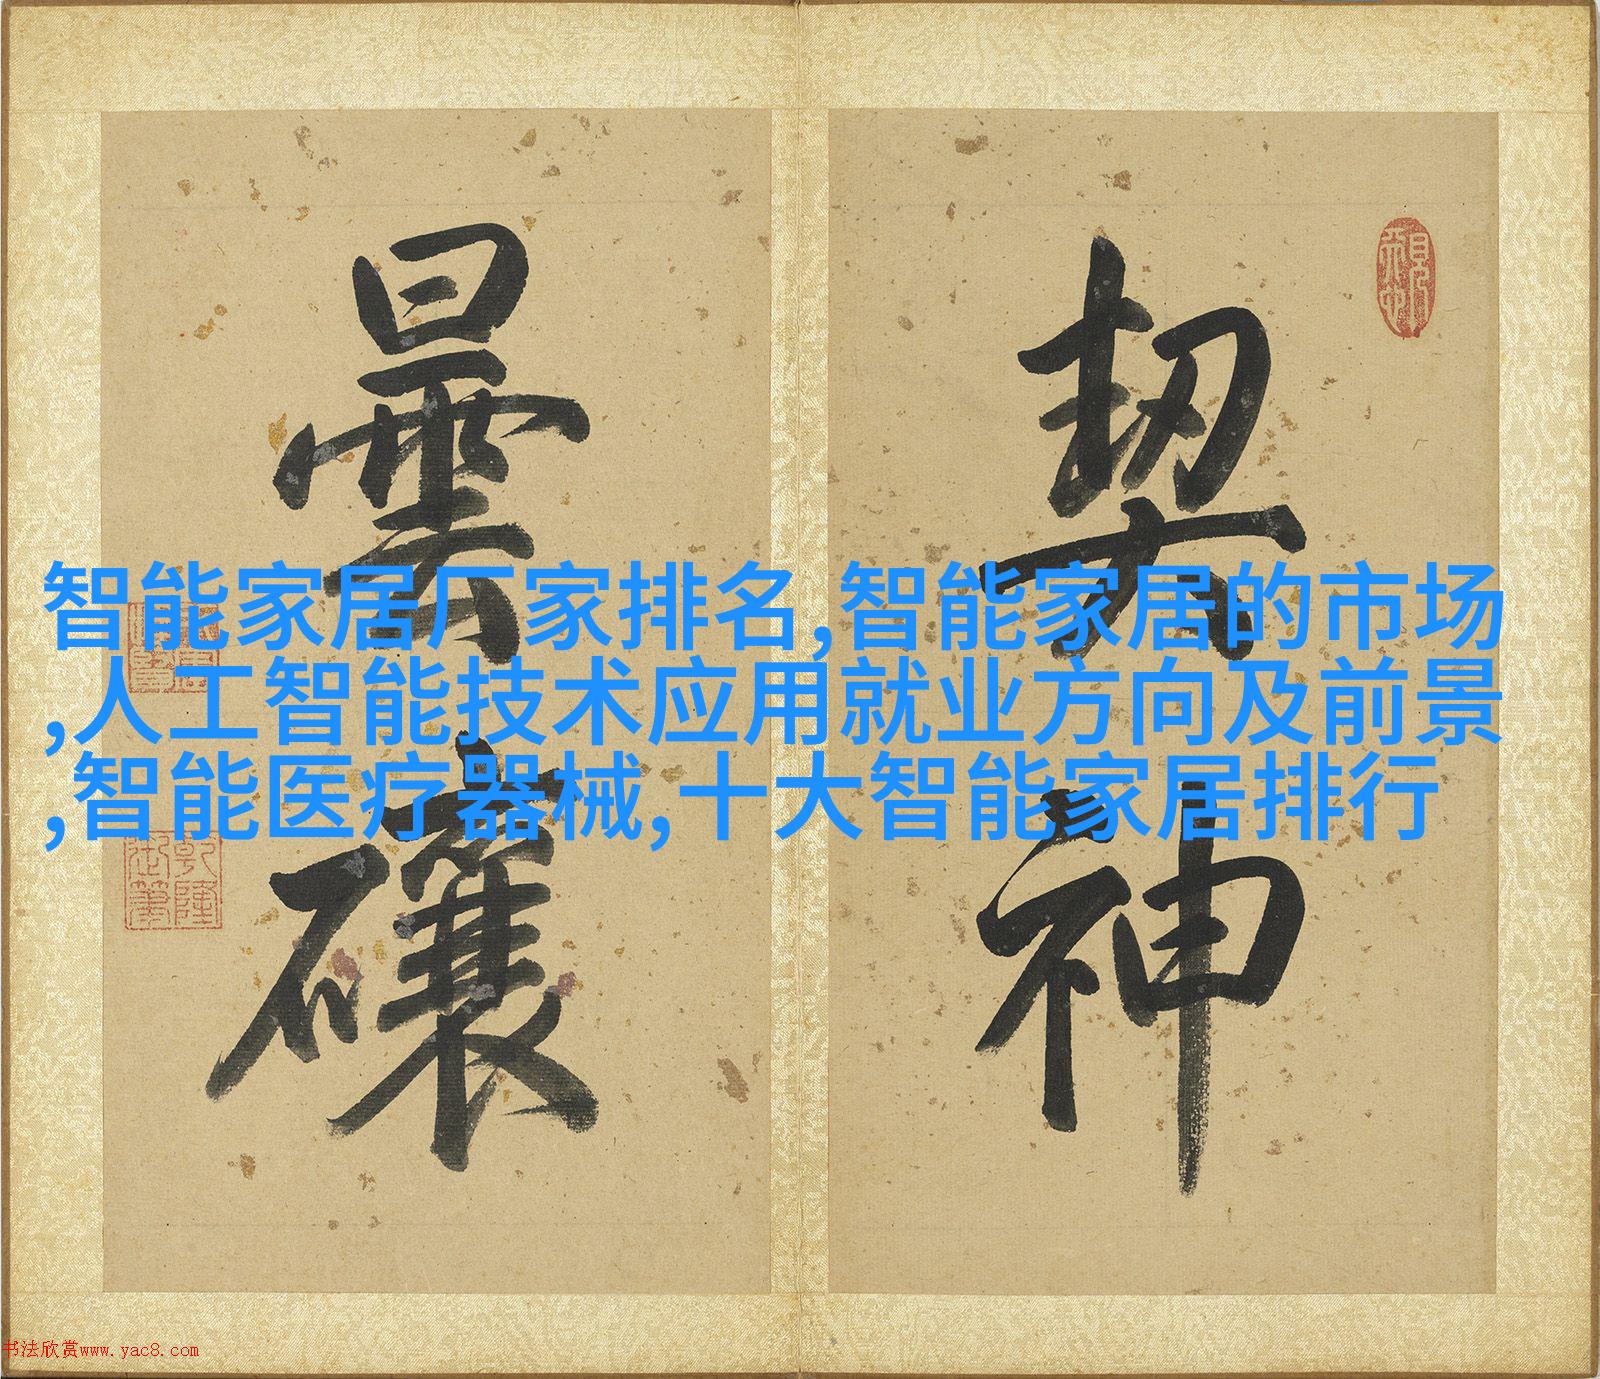 契神
曇礦
智能家居厂家排名,智能家居的市场
,人工智能技术应用就业方向及前景
,智能医疗器械,十大智能家居排行
乾隆
御筆
书法欣赏www.yac8.com